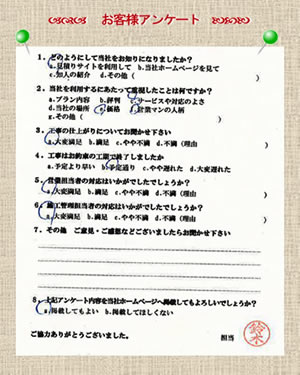 お客様アンケート
1、どのようにして当社をお知りになりましたか?
a.見積りサイトを利用して b.当社ホームページを見て
c.知人の紹介 d.その他( )
2、当社を利用するにあたって重視したことは何ですか?
a.プラン内容 b.評判 c.サービスや対応のよさ
d.当社の場所 e.価格 f.営業マンの人柄
g.その他( )
3、工事の仕上がりについてお聞かせ下さい
a.大変満足 b.満足 c.やや不満 d.不満(理由 )
4、工事はお約束の工期で終了しましたか
a.予定より早い b.予定通り c.やや遅れた d.大変遅れた
5、営業担当者の対応はいかがでしたでしょうか?
a.大変満足 b.満足 c.やや不満 d.不満(理由 )
6、施工管理担当者の対応はいかがでしたでしょうか?
a.大変満足 b.満足 c.やや不満 d.不満(理由 )
7、その他 ご意見・ご感想などございましたらお聞かせ下さい
8、上記アンケート内容を当社ホームページへ掲載してもよろしいでしょうか?
a.掲載してもよい b.掲載してほしくない
ご協力ありがとうございました。 担当 鈴木